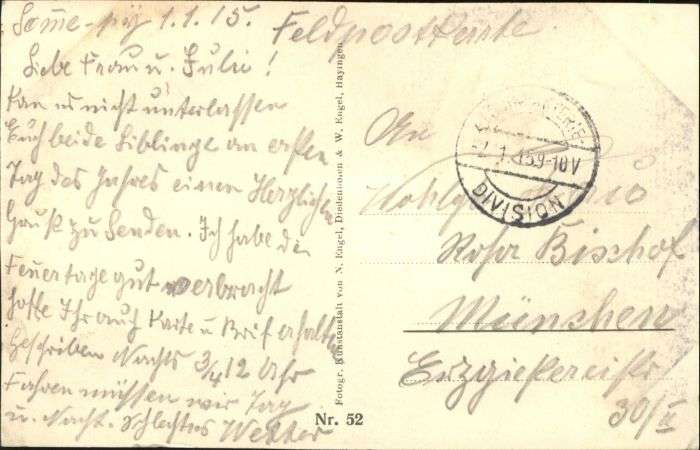 Somme-py 1.1.15.
Feldpostkarte
Liebe Frau u. Julie!
Kan u nicht unterlassen
Euch beide Liblinge an ersten
Tag des Jahres einen Herzlichen
Gruß zu Senden. Ich habe die
Feuertage gut verbracht
hoffe Ihr auch Karte u Brif erhalten
Geschriben Nachts 3/4 12 Uhr
Fahren müssen wir Tag
u. Nacht. Schlechtes Wetter
Photogr. Kunstanstalt von N. Engel, Diedenhofen & W. Engel, Hayingen
Nr. 52
An
1.15 9-10V
DIVISION
Rohr Bischof
München
Erzgiesereistr
30/II